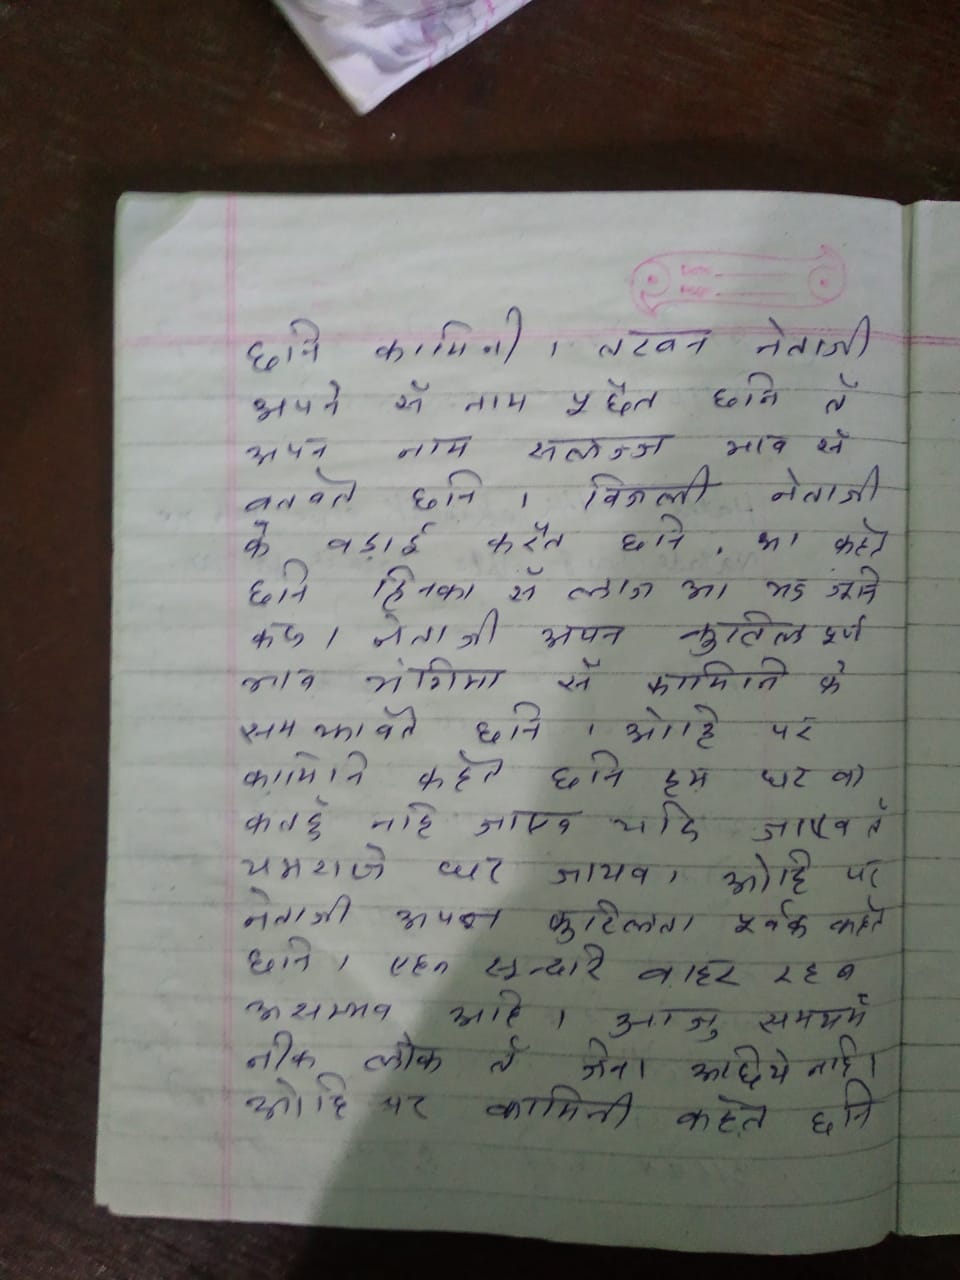 छनि कामिनी। तखन नेताजी
अपने सँ नाम पुछैत छनि तँ
अपन नाम सलज्ज भाव सँ
बतबैत छनि। बिजली नेताजी
कै बड़ाई करैत छनि, आ कहैत
छनि हिनका सँ लाज आ
कए। नेताजी अपन पूर्ण
भाव भंगिमा सँ कामिनि कै
समझाबैत छनि। ओहि पर
कामिनि कहैत छनि हम घर बा
कतहुँ नहि जायब यदि जायब तँ
यमराजे घर जायब। ओहि पर
नेताजी अपन कुटिलता पूर्वक कहैत
छनि। एहन सुन्दरि बाहर रहब
असम्भव अछि। आजु समयमे
नीक लोक तँ जेना अछिये नहि।
ओहि पर कामिनी कहैत छनि